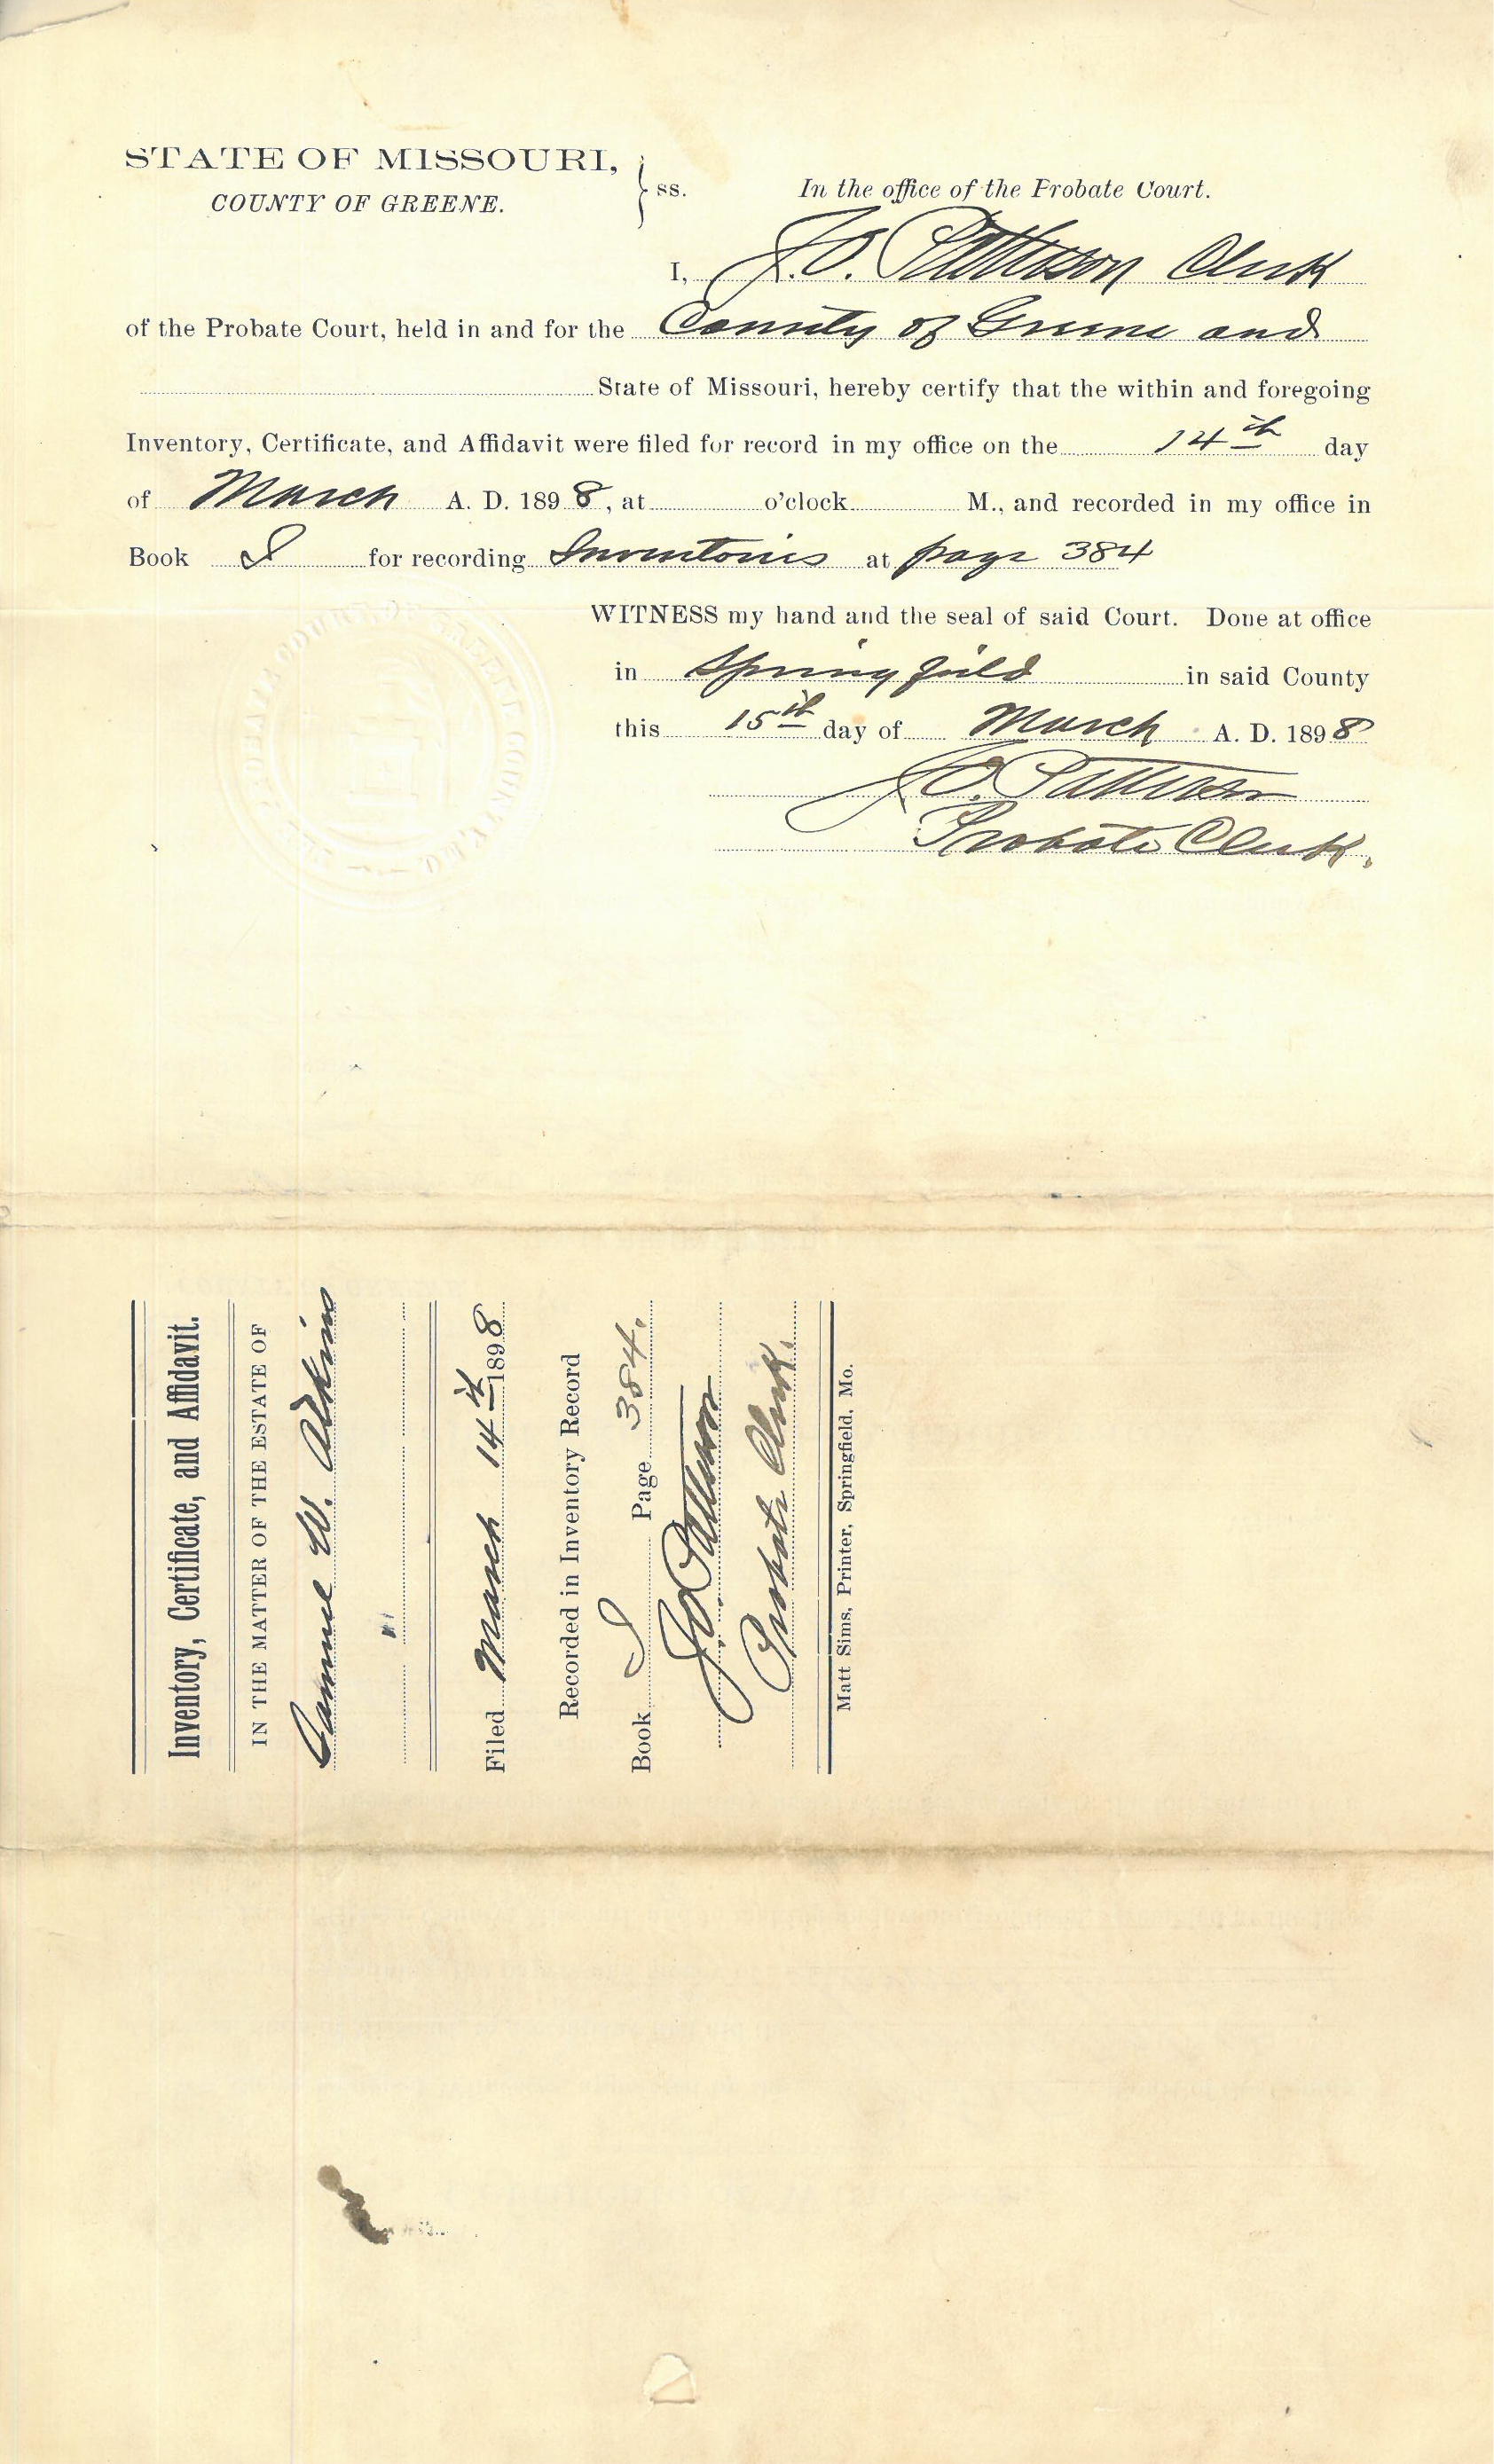 STATE OF MISSOURI,
COUNTY OF GREENE.
ss.
In the office of the Probate Court.
I, J.O. Patterson Clerk
of the Probate Court, held in and for the County of Greene and
State of Missouri, hereby certify that the within and foregoing
Inventory, Certificate, and Affidavit were filed for record in my office on the 14th day
of March A. D. 1898, at o'clock M., and recorded in my office in
Book I for recording Inventories at page 384
WITNESS my hand and the seal of said Court. Done at office
in Springfield in said County
this 15th day of March A. D. 1898
J.O. Patterson
Probate Clerk.
Inventory, Certificate, and Affidavit.
IN THE MATTER OF THE ESTATE OF
W. Adkins
Filed March 14th 1898
Recorded in Inventory Record
Book I Page 384.
J.O. Patterson
Probate Clerk.
Matt Sims, Printer, Springfield, Mo.